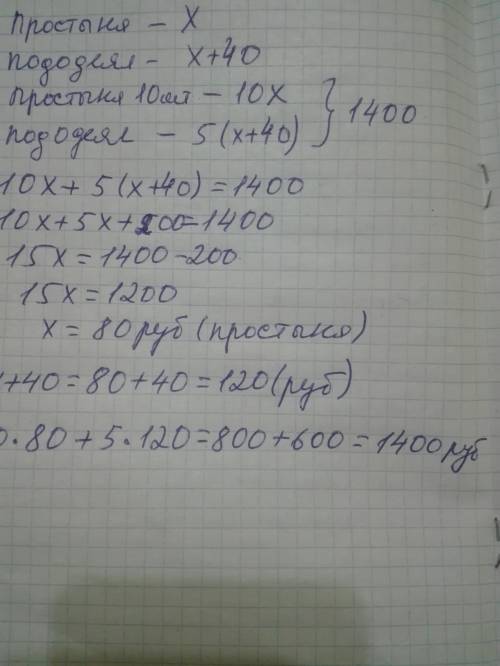 Простыня – X
пододеял – x+40
Простыня 10шт – 10X } 1400
пододеял – 5(x+40)
10x+5(x+40)=1400
10x+5x+200=1400
15x=1400-200
15x=1200
x=80руб (простыня)
+40=80+40=120(руб)
0·80+5·120=800+600=1400руб